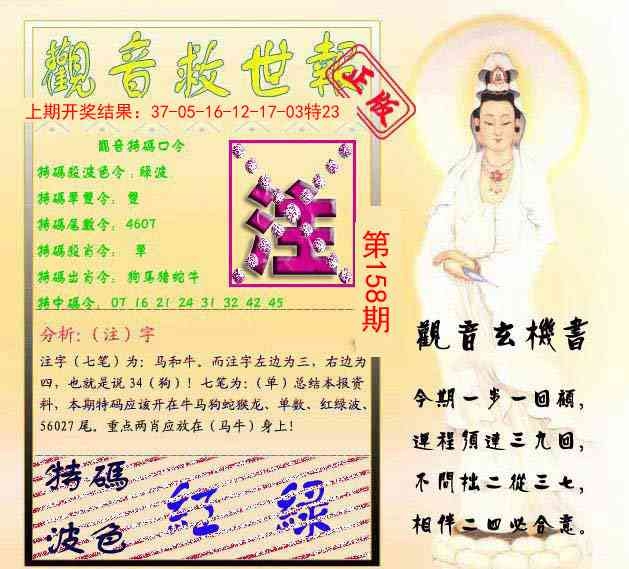 觀音救世報
正版
上期开奖结果：37-05-16-12-17-03特23
觀音特碼口令
特碼段波色令：綠波
特碼單雙令： 雙
特碼尾數令： 4607
特碼段肖令： 單
特碼出肖令： 狗馬猪蛇牛
特中碼令： 07 16 21 24 31 32 42 45
注
第158期
分析:（注）字
注字（七笔）为：马和牛。而注字左边为三，右边为
四，也就是说 34（狗）！七笔为：（单）总结本报资
料，本期特码应该开在牛马狗蛇猴龙、单数、红绿波、
56027 尾。重点两肖应放在（马牛）身上！
特碼
波色
紅 綠
觀音玄機書
今期一步一回顧，
運程須達三九回，
不問拙二從三七，
相伴二四必合意。